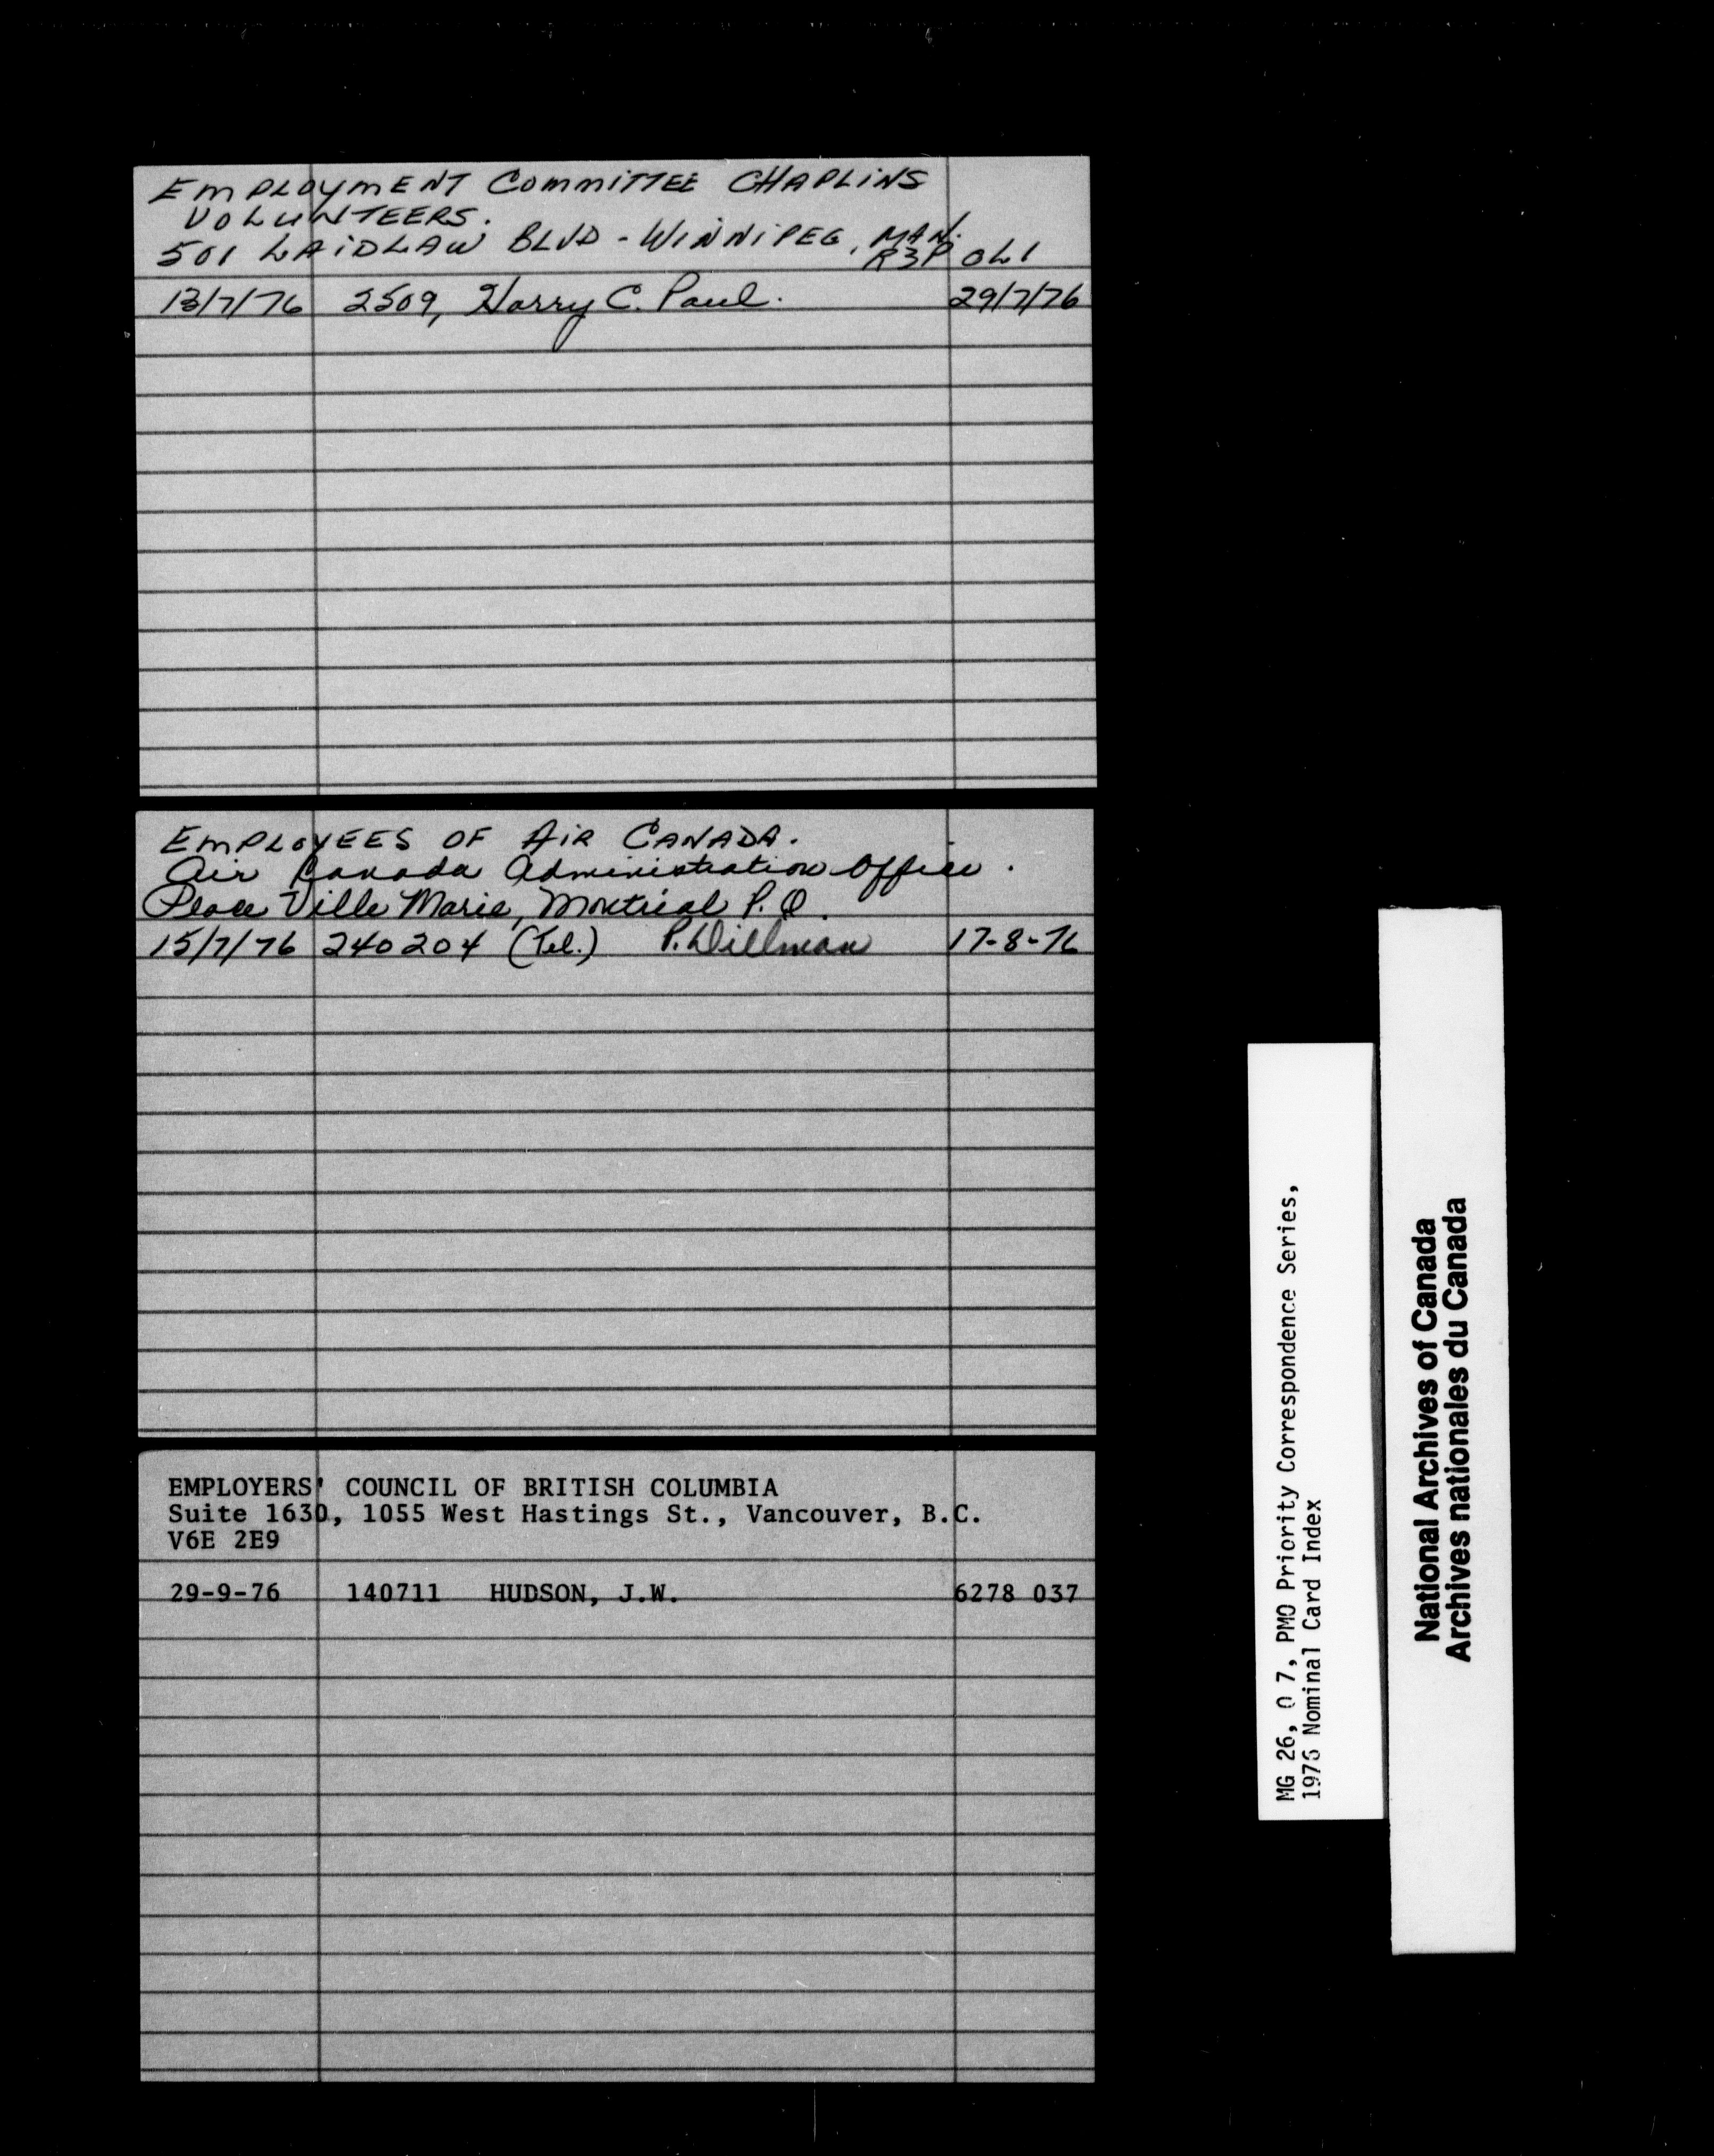 EMPLOYMENT COMMITTEE CHAPLINS
VOLUNTEERS.
501 LAIDLAW BLVD - WINNIPEG, MAN.
R3P 0L1
13/7/76 2509, Harry C. Paul. 29/7/76
EMPLOYEES OF AIR CANADA.
Air Canada Administration Office.
Place Ville Marie, Montreal P.Q.
15/7/76 240204 (Tel.) P. Dillman 17-8-76
EMPLOYERS' COUNCIL OF BRITISH COLUMBIA
Suite 1630, 1055 West Hastings St., Vancouver, B.C.
V6E 2E9
29-9-76 140711 HUDSON, J.W. 6278 037
MG 26, O 7, PMO Priority Correspondence Series,
1976 Nominal Card Index
National Archives of Canada
Archives nationales du Canada